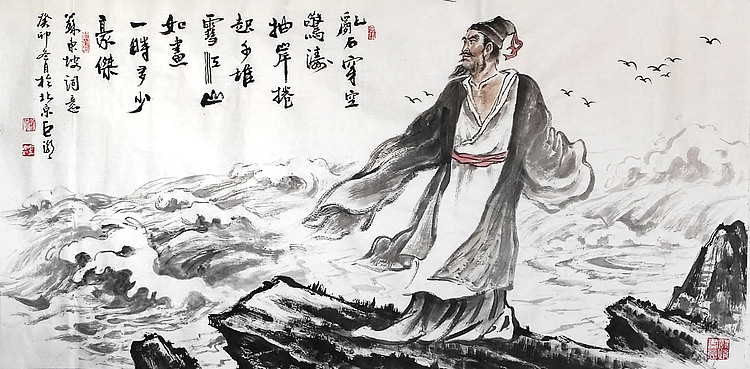 亂石穿空
驚濤
拍岸捲
起千堆
雪江山
如畫
一時多少
豪傑
蘇東坡詞意
癸卯冬月於北京